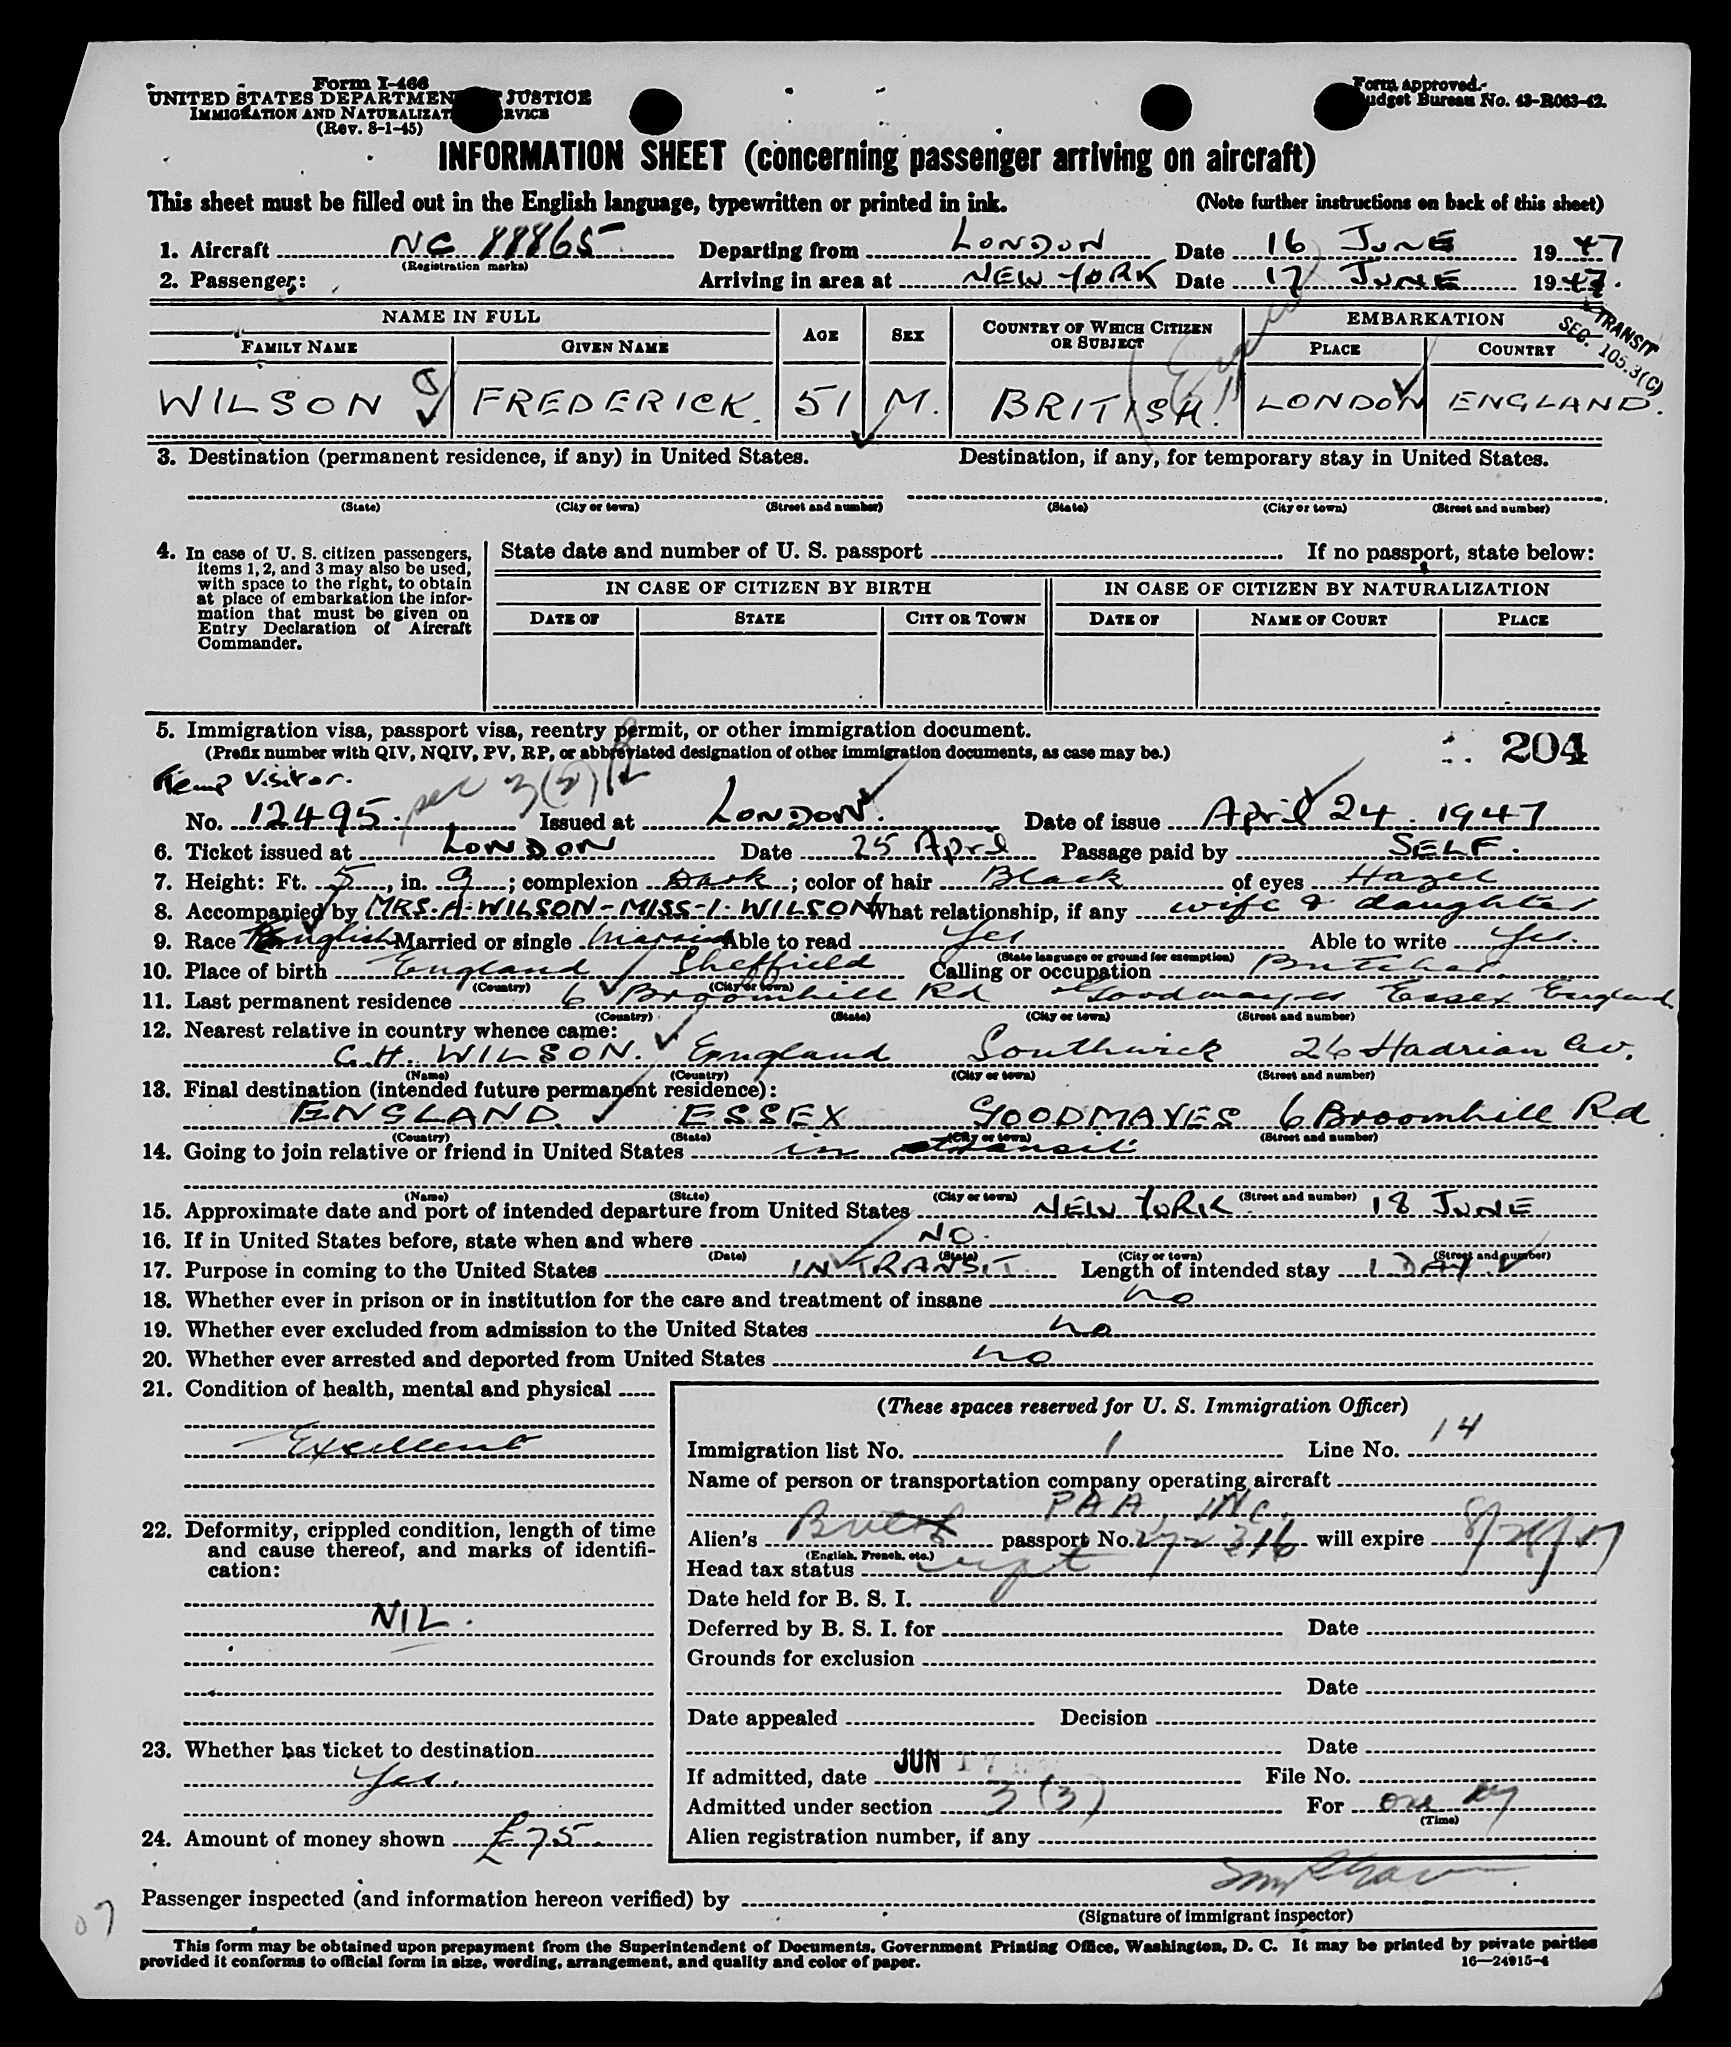 Form I-466
UNITED STATES DEPARTMENT JUSTICE
IMMIGRATION AND NATURALIZAT RVICE
(Rev. 8-1-45)
Form approved.
udget Bureau No. 43-R063-42.
INFORMATION SHEET (concerning passenger arriving on aircraft)
This sheet must be filled out in the English language, typewritten or printed in ink. (Note further instructions on back of this sheet)
1. Aircraft NC 88865 Departing from LONDON Date 16 JUNE 1947
(Registration marks)
2. Passenger: Arriving in area at NEW YORK Date 17 JUNE 1947.
TRANSIT
SEC. 105.3(C)
NAME IN FULL AGE SEX COUNTRY OF WHICH CITIZEN OR SUBJECT EMBARKATION
FAMILY NAME GIVEN NAME PLACE COUNTRY
WILSON FREDERICK. 51 M. BRITISH. LONDON ENGLAND.
3. Destination (permanent residence, if any) in United States. Destination, if any, for temporary stay in United States.
(State) (City or town) (Street and number) (State) (City or town) (Street and number)
4. In case of U. S. citizen passengers, items 1, 2, and 3 may also be used, with space to the right, to obtain at place of embarkation the information that must be given on Entry Declaration of Aircraft Commander.
State date and number of U. S. passport If no passport, state below:
IN CASE OF CITIZEN BY BIRTH IN CASE OF CITIZEN BY NATURALIZATION
DATE OF STATE CITY OR TOWN DATE OF NAME OF COURT PLACE
5. Immigration visa, passport visa, reentry permit, or other immigration document.
(Prefix number with QIV, NQIV, PV, RP, or abbreviated designation of other immigration documents, as case may be.)
204
Temp Visitor.
No. 12495. Issued at LONDON. Date of issue April 24. 1947
6. Ticket issued at LONDON Date 25 April Passage paid by SELF.
7. Height: Ft. 5, in. 9; complexion Dark; color of hair Black of eyes Hazel
8. Accompanied by MRS. A. WILSON - MISS. I. WILSON What relationship, if any wife & daughter
9. Race English Married or single Married Able to read Yes Able to write Yes.
(State language or ground for exemption)
10. Place of birth England Sheffield Calling or occupation Butcher
(Country) (City or town)
11. Last permanent residence 6 Broomhill Rd Goodmayes Essex England
(Country) (State) (City or town) (Street and number)
12. Nearest relative in country whence came:
C.H. WILSON. England Southwick 26 Hadrian Av.
(Name) (Country) (City or town) (Street and number)
13. Final destination (intended future permanent residence):
ENGLAND. ESSEX GOODMAYES 6 Broomhill Rd
(Country) (State) (City or town) (Street and number)
14. Going to join relative or friend in United States in transit
(Name) (State) (City or town) (Street and number)
15. Approximate date and port of intended departure from United States NEW YORK. 18 JUNE
16. If in United States before, state when and where NO.
(Date) (State) (City or town) (Street and number)
17. Purpose in coming to the United States IN TRANSIT. Length of intended stay 1 DAY.
18. Whether ever in prison or in institution for the care and treatment of insane no
19. Whether ever excluded from admission to the United States no
20. Whether ever arrested and deported from United States no
21. Condition of health, mental and physical
Excellent
22. Deformity, crippled condition, length of time and cause thereof, and marks of identification:
NIL.
23. Whether has ticket to destination
Yes.
24. Amount of money shown £75.
(These spaces reserved for U. S. Immigration Officer)
Immigration list No. 1 Line No. 14
Name of person or transportation company operating aircraft
PAA, INC.
Alien's passport No. will expire
(English, French, etc.)
Head tax status
Date held for B. S. I.
Deferred by B. S. I. for Date
Grounds for exclusion
Date
Date appealed Decision
Date
If admitted, date JUN 17 File No.
Admitted under section 3 (3) For one day
(Time)
Alien registration number, if any
Passenger inspected (and information hereon verified) by
(Signature of immigrant inspector)
07
This form may be obtained upon prepayment from the Superintendent of Documents, Government Printing Office, Washington, D. C. It may be printed by private parties
provided it conforms to official form in size, wording, arrangement, and quality and color of paper. 16—24915-4